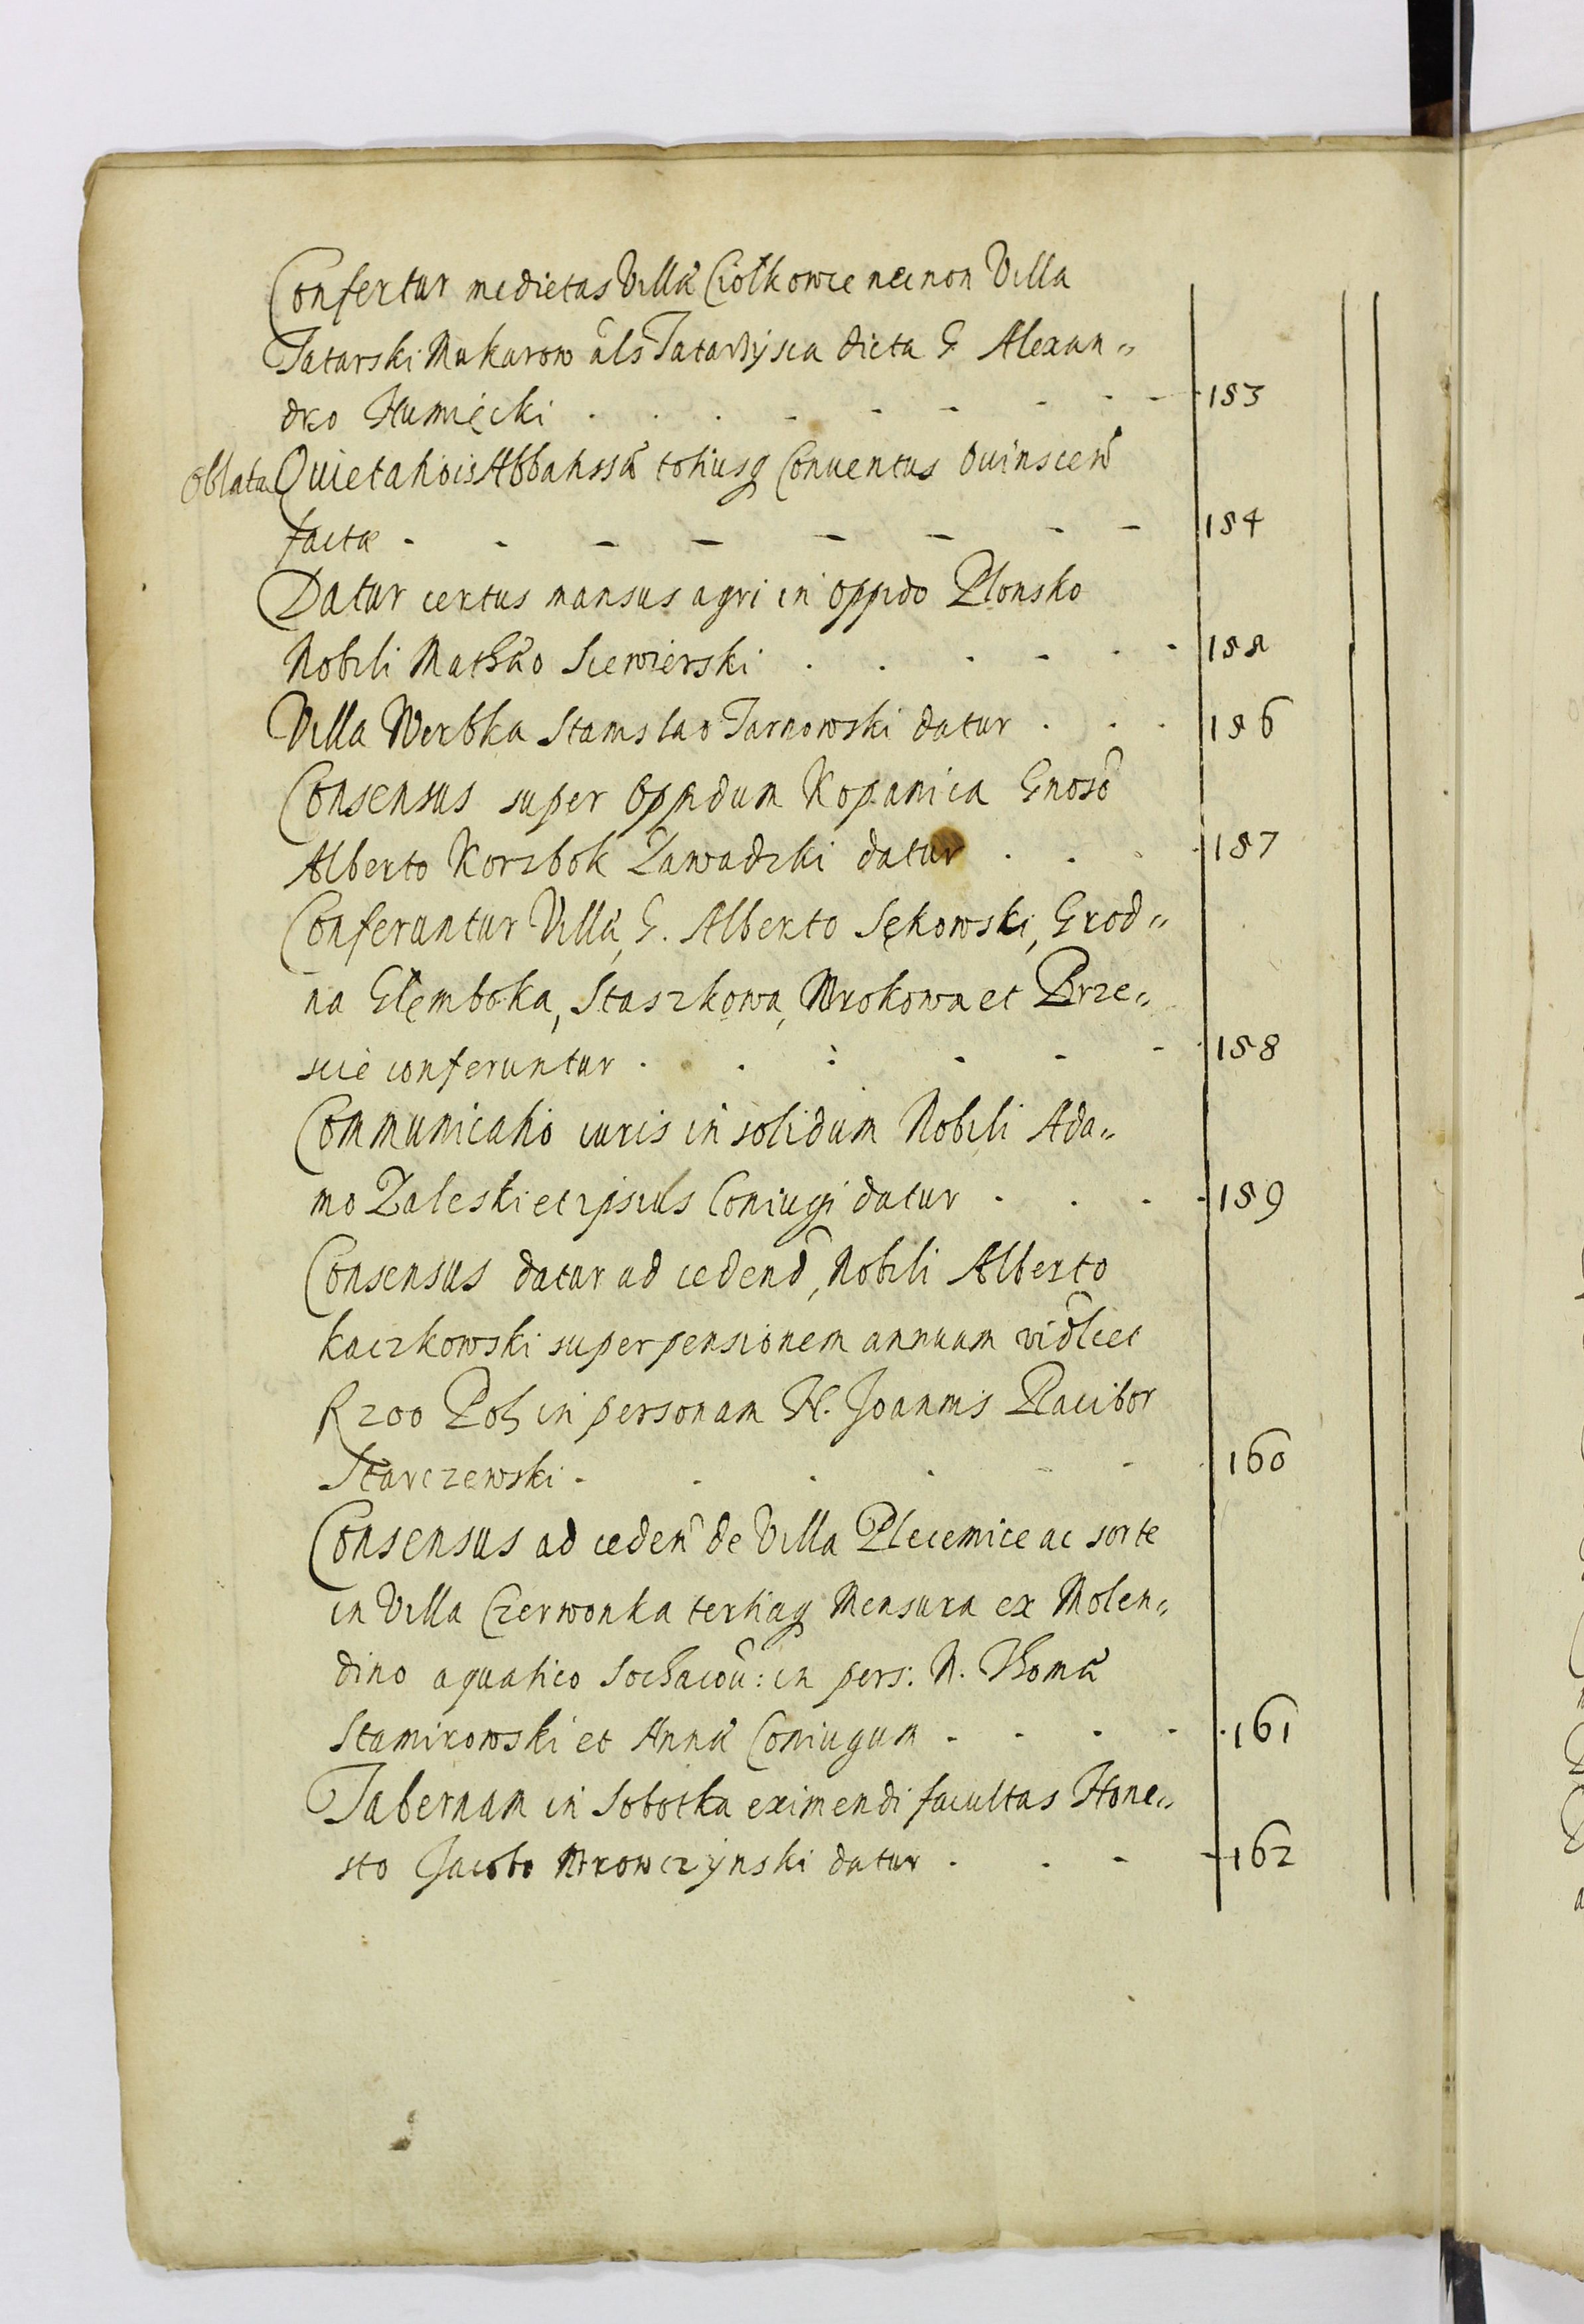 Confertur medietas Villæ Ciołkowce necnon Villa
Tatarski Makarow als Tatarzysca dicta G. Alexan„
dro Humięcki 153
Oblata Quietationis Abbatissæ totiusq Conuentus Ouinscen
factæ 154
Datur certus mansus agri in oppido Plonsko
Nobili Mathæo Siewierski 155
Villa Werbka Stanislao Tarnowski datur 156
Consensus super Oppidum Kopanica Gnoso
Alberto Korzbok Zawadzki datur 157
Conferuntur Villæ, G. Alberto Sękowski, Grod„
na Glęmboka, Staszkowa, Mrokowa et Brze„
scie conferuntur 158
Communicatio iuris in solidum Nobili Ada„
mo Zaleski et ipsius Coniugi datur 159
Consensus datur ad cedend, Nobili Alberto
Kaczkowski super pensionem annuam vidlcet
R 200 Pol in personam N. Joannis Racibor
Starczewski 160
Consensus ad ceden de Villa Plecemice ac sorte
in Villa Czerwonka tertiaq Mensura ex Molen„
dino aquatico Sochacou: in pers: N. Thomæ
Stamirowski et Annæ Coniugum 161
Tabernam in Sobotka eximendi facultas Hone„
sto Jacobo Mrowczynski datur 162